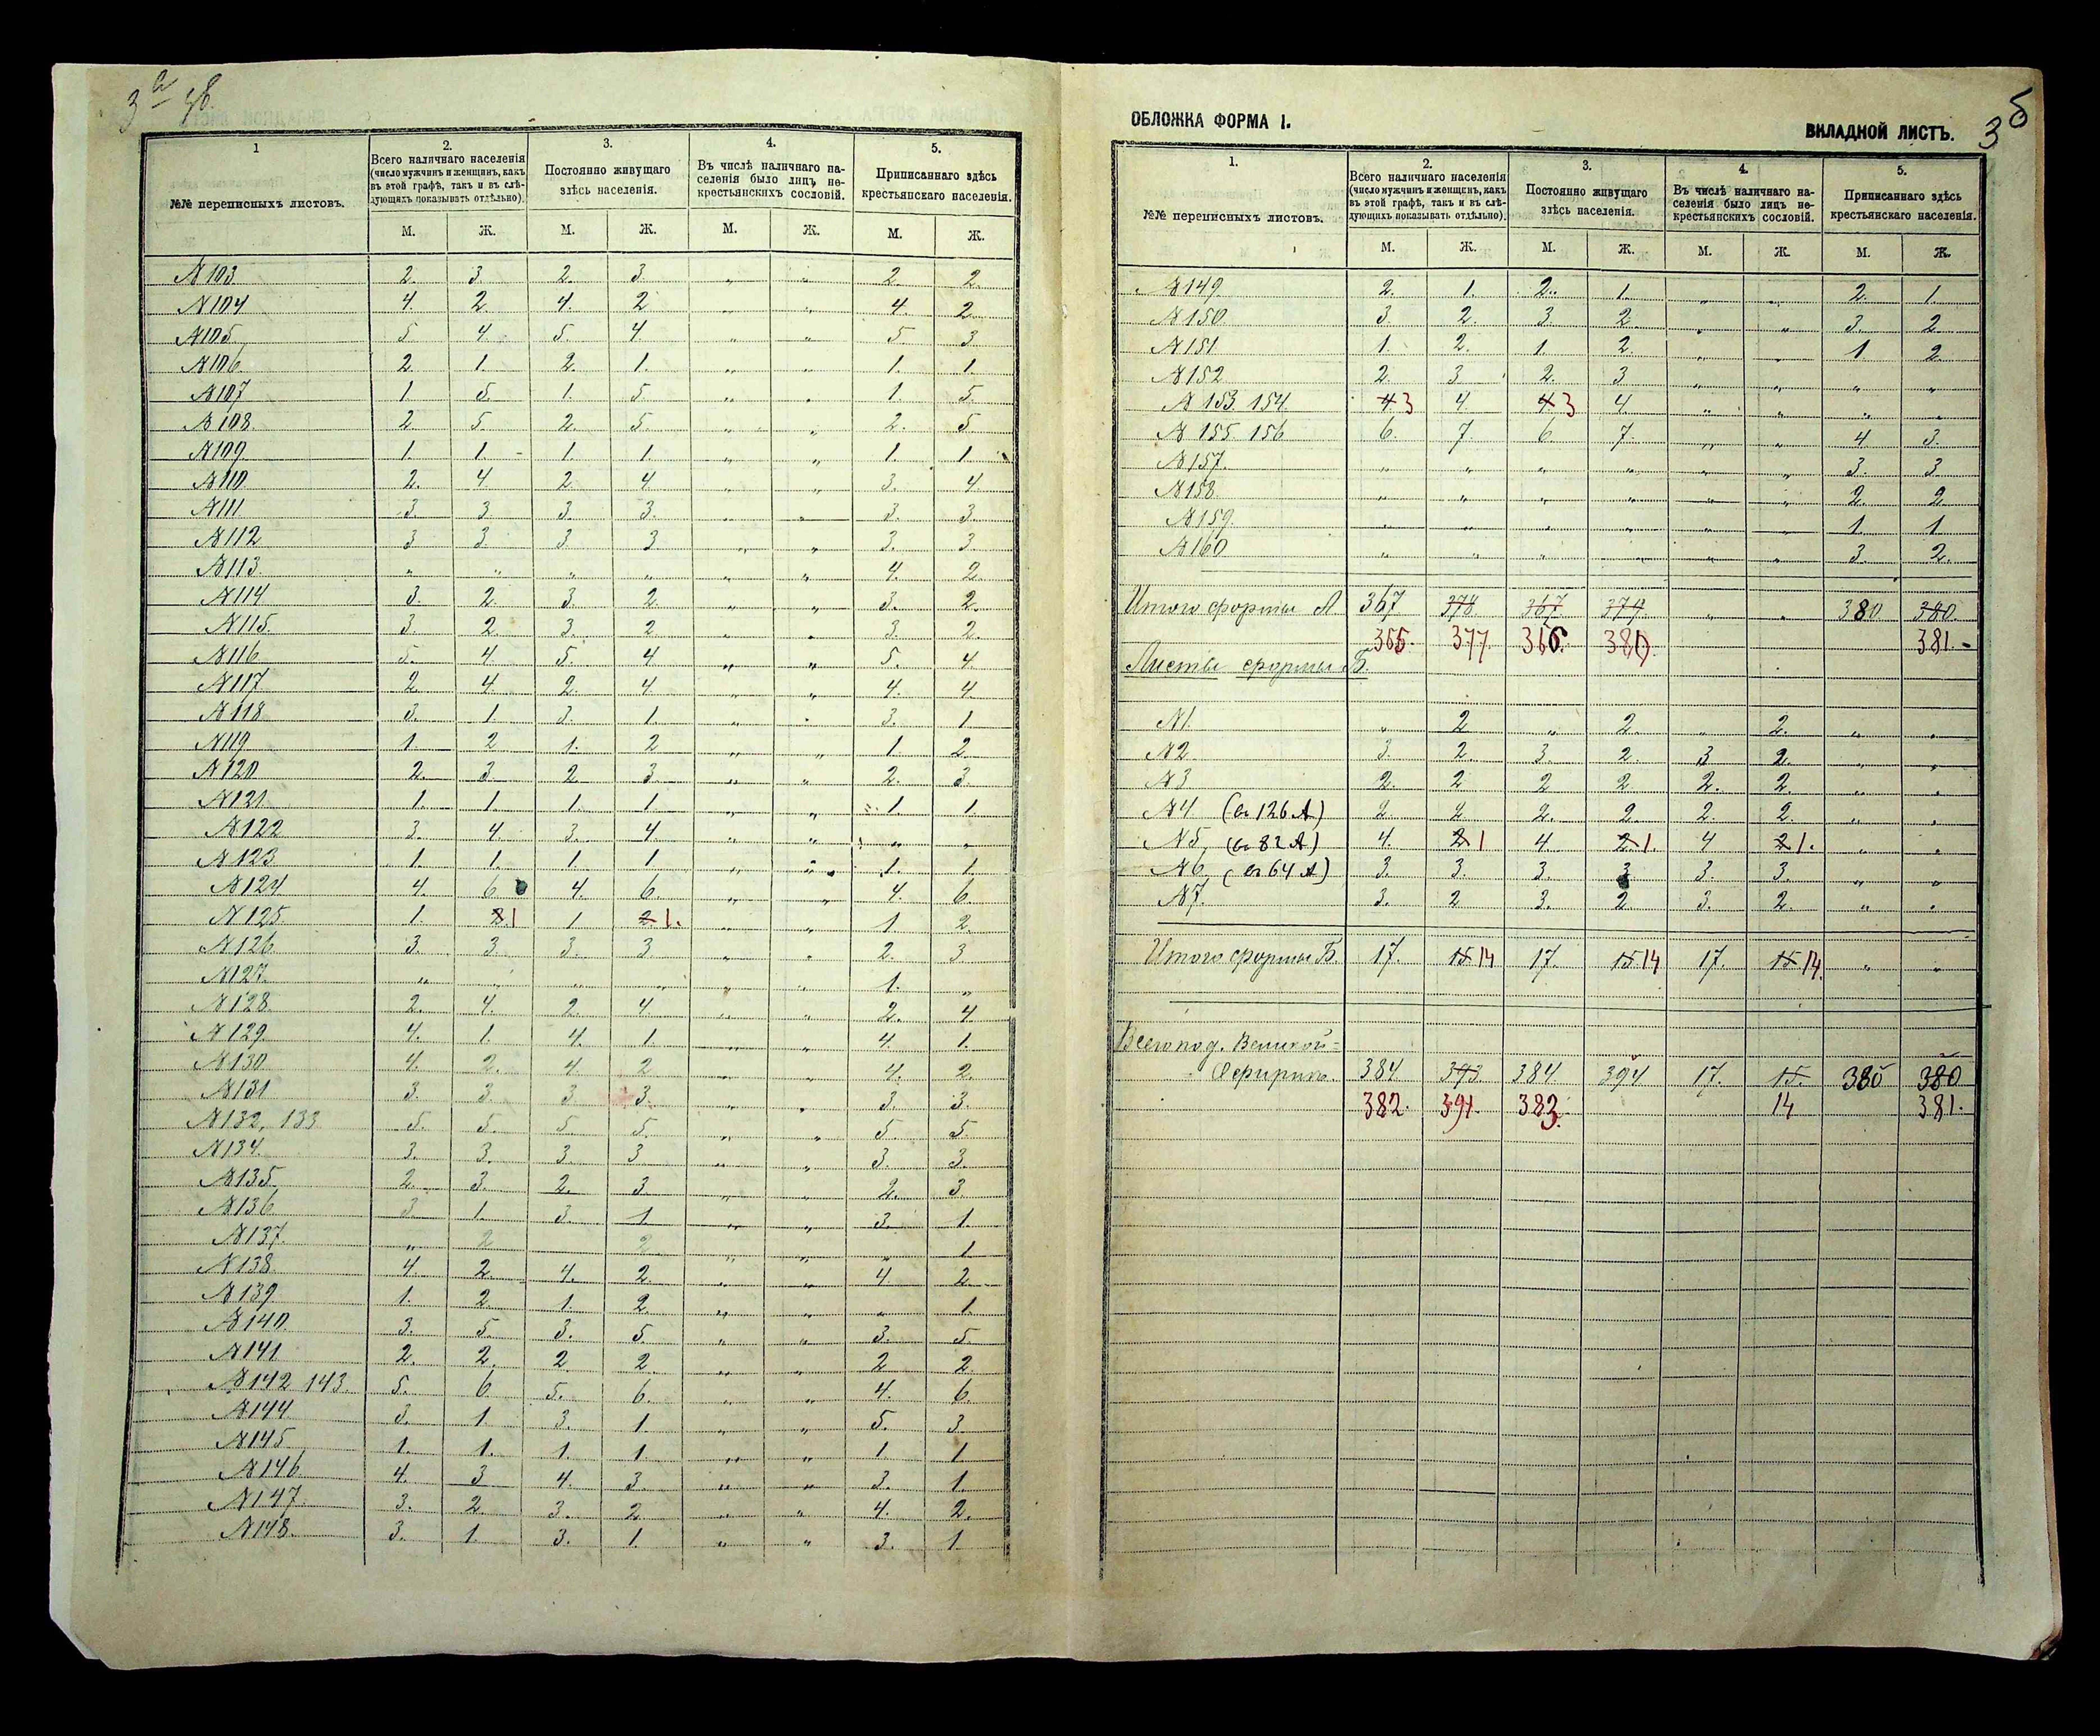 3а
1
№№ переписныхъ листовъ.
2.
Всего наличнаго населенія
(число мужчинъ и женщинъ, какъ
въ этой графѣ, такъ и въ слѣ-
дующихъ показывать отдѣльно).
3.
Постоянно живущаго
здѣсь населенія.
4.
Въ числѣ наличнаго на-
селенія было лицъ не-
крестьянскихъ сословій.
5.
Приписаннаго здѣсь
крестьянскаго населенія.
М. Ж. М. Ж. М. Ж. М. Ж.
№103 2. 3 2. 3. " " 2. 2.
№104 4. 2 4. 2 " " 4. 2.
№105 5 4 5. 4 " " 5 3
№106 2 1. 2. 1. " " 1. 1.
№107 1 5. 1. 5 " " 1. 5
№108. 2 5 2. 5. " " 2. 5
№109 1. 1 1. 1. " " 1. 1
№110 2. 4 2 4 " " 3. 4
№111 3 3. 3. 3. " " 3. 3.
№112 3 3 3 3 " " 3. 3.
№113 " " " " " " 4. 2.
№114 3. 2. 3. 2. " " 3. 2.
№115. 3. 2 3. 2 " " 3. 2.
№116 5. 4. 5. 4 " " 5. 4
№117 2. 4. 2. 4 " " 4. 4
№118 3. 1 3. 1 " " 3. 1
№119 1. 2 1. 2 " " 1. 2
№120 2. 3. 2 3. " " 2. 3.
№121 1. 1 1. 1 " " 1. 1
№122 3. 4 3. 4. " " " "
№123 1. 1. 1 1 " " 1. 1.
№124 4. 6 4. 6. " " 4. 6
№125. 1. 2 1 1 2 1. " " 1. 2
№126 3. 3. 3. 3 " " 2. 3
№127. " " " " " " 1. "
№128. 2. 4. 2 4. " " 2. 4
№129. 4. 1. 4. 1 " " 4. 1.
№130 4. 2. 4. 2 " " 4. 2.
№131 3. 3. 3 3. " " 3. 3.
№132, 133 5. 5. 5. 5. " " 5. 5.
№134. 3. 3. 3. 3 " " 3. 3.
№135. 2 3. 2. 3. " " 2. 3
№136 3. 1. 3. 1. " " 3. 1.
№137. " 2 2 " " " 1
№138 4 2 4. 2. " " 4 2
№139 1. 2. 1. 2 " " " 1.
№140. 3. 5. 3. 5. " " 3. 5.
№141 2. 2. 2 2 " " 2 2
№142 143. 5. 6 5. 6. " " 4. 6.
№144 3. 1 3. 1. " " 5. 3
№145 1. 1. 1. 1. " " 1. 1
№146 4. 3 4. 3. " " 3. 1.
№147. 3. 2 3. 2. " " 4. 2.
№148. 3. 1. 3. 1. " " 3. 1
ОБЛОЖКА ФОРМА I.
ВКЛАДНОЙ ЛИСТЪ.
3б
1.
№№ переписныхъ листовъ.
2.
Всего наличнаго населенія
(число мужчинъ и женщинъ, какъ
въ этой графѣ, такъ и въ слѣ-
дующихъ показывать отдѣльно).
3.
Постоянно живущаго
здѣсь населенія.
4.
Въ числѣ наличнаго на-
селенія было лицъ не-
крестьянскихъ сословій.
5.
Приписаннаго здѣсь
крестьянскаго населенія.
М. Ж. М. Ж. М. Ж. М. Ж.
№149. 2. 1. 2. 1. " " 2. 1.
№150. 3. 2. 3. 2 " " 3. 2
№151 1. 2. 1. 2. " " 1 2
№152 2. 3 2. 3 " " " "
№153. 154. 4. 3 4 4. 3 4. " " " "
№155. 156 6. 7. 6. 7. " " 4 3.
№157. " " " " " " 3. 3.
№158. " " " " " " 2. 2.
№159. " " " " " " 1. 1.
№160 " " " " " " 3. 2.
Итого формы А. 367 378 367 379 " " 380 380
365. 377. 366. 380. 381.-
Листы формы Б.
№1. " 2 " 2. " 2. " "
№2 3. 2. 3. 2. 3 2. " "
№3 2. 2 2 2 2. 2. " "
№4 (въ 126 А) 2 2 2. 2. 2. 2. " "
№5, (въ 82 А) 4. 2 1 4 2 1. 4 2 1. " "
№6, (въ 64 А) 3. 3. 3. 3 3. 3. " "
№7. 3. 2 3. 2 3. 2. " "
Итого формы Б. 17. 15 14 17. 15 14 17. 15 14. " "
Всего по д. Великой-
384 393 384 394 17. 15. 380 380
382. 391. 383. 14 381.